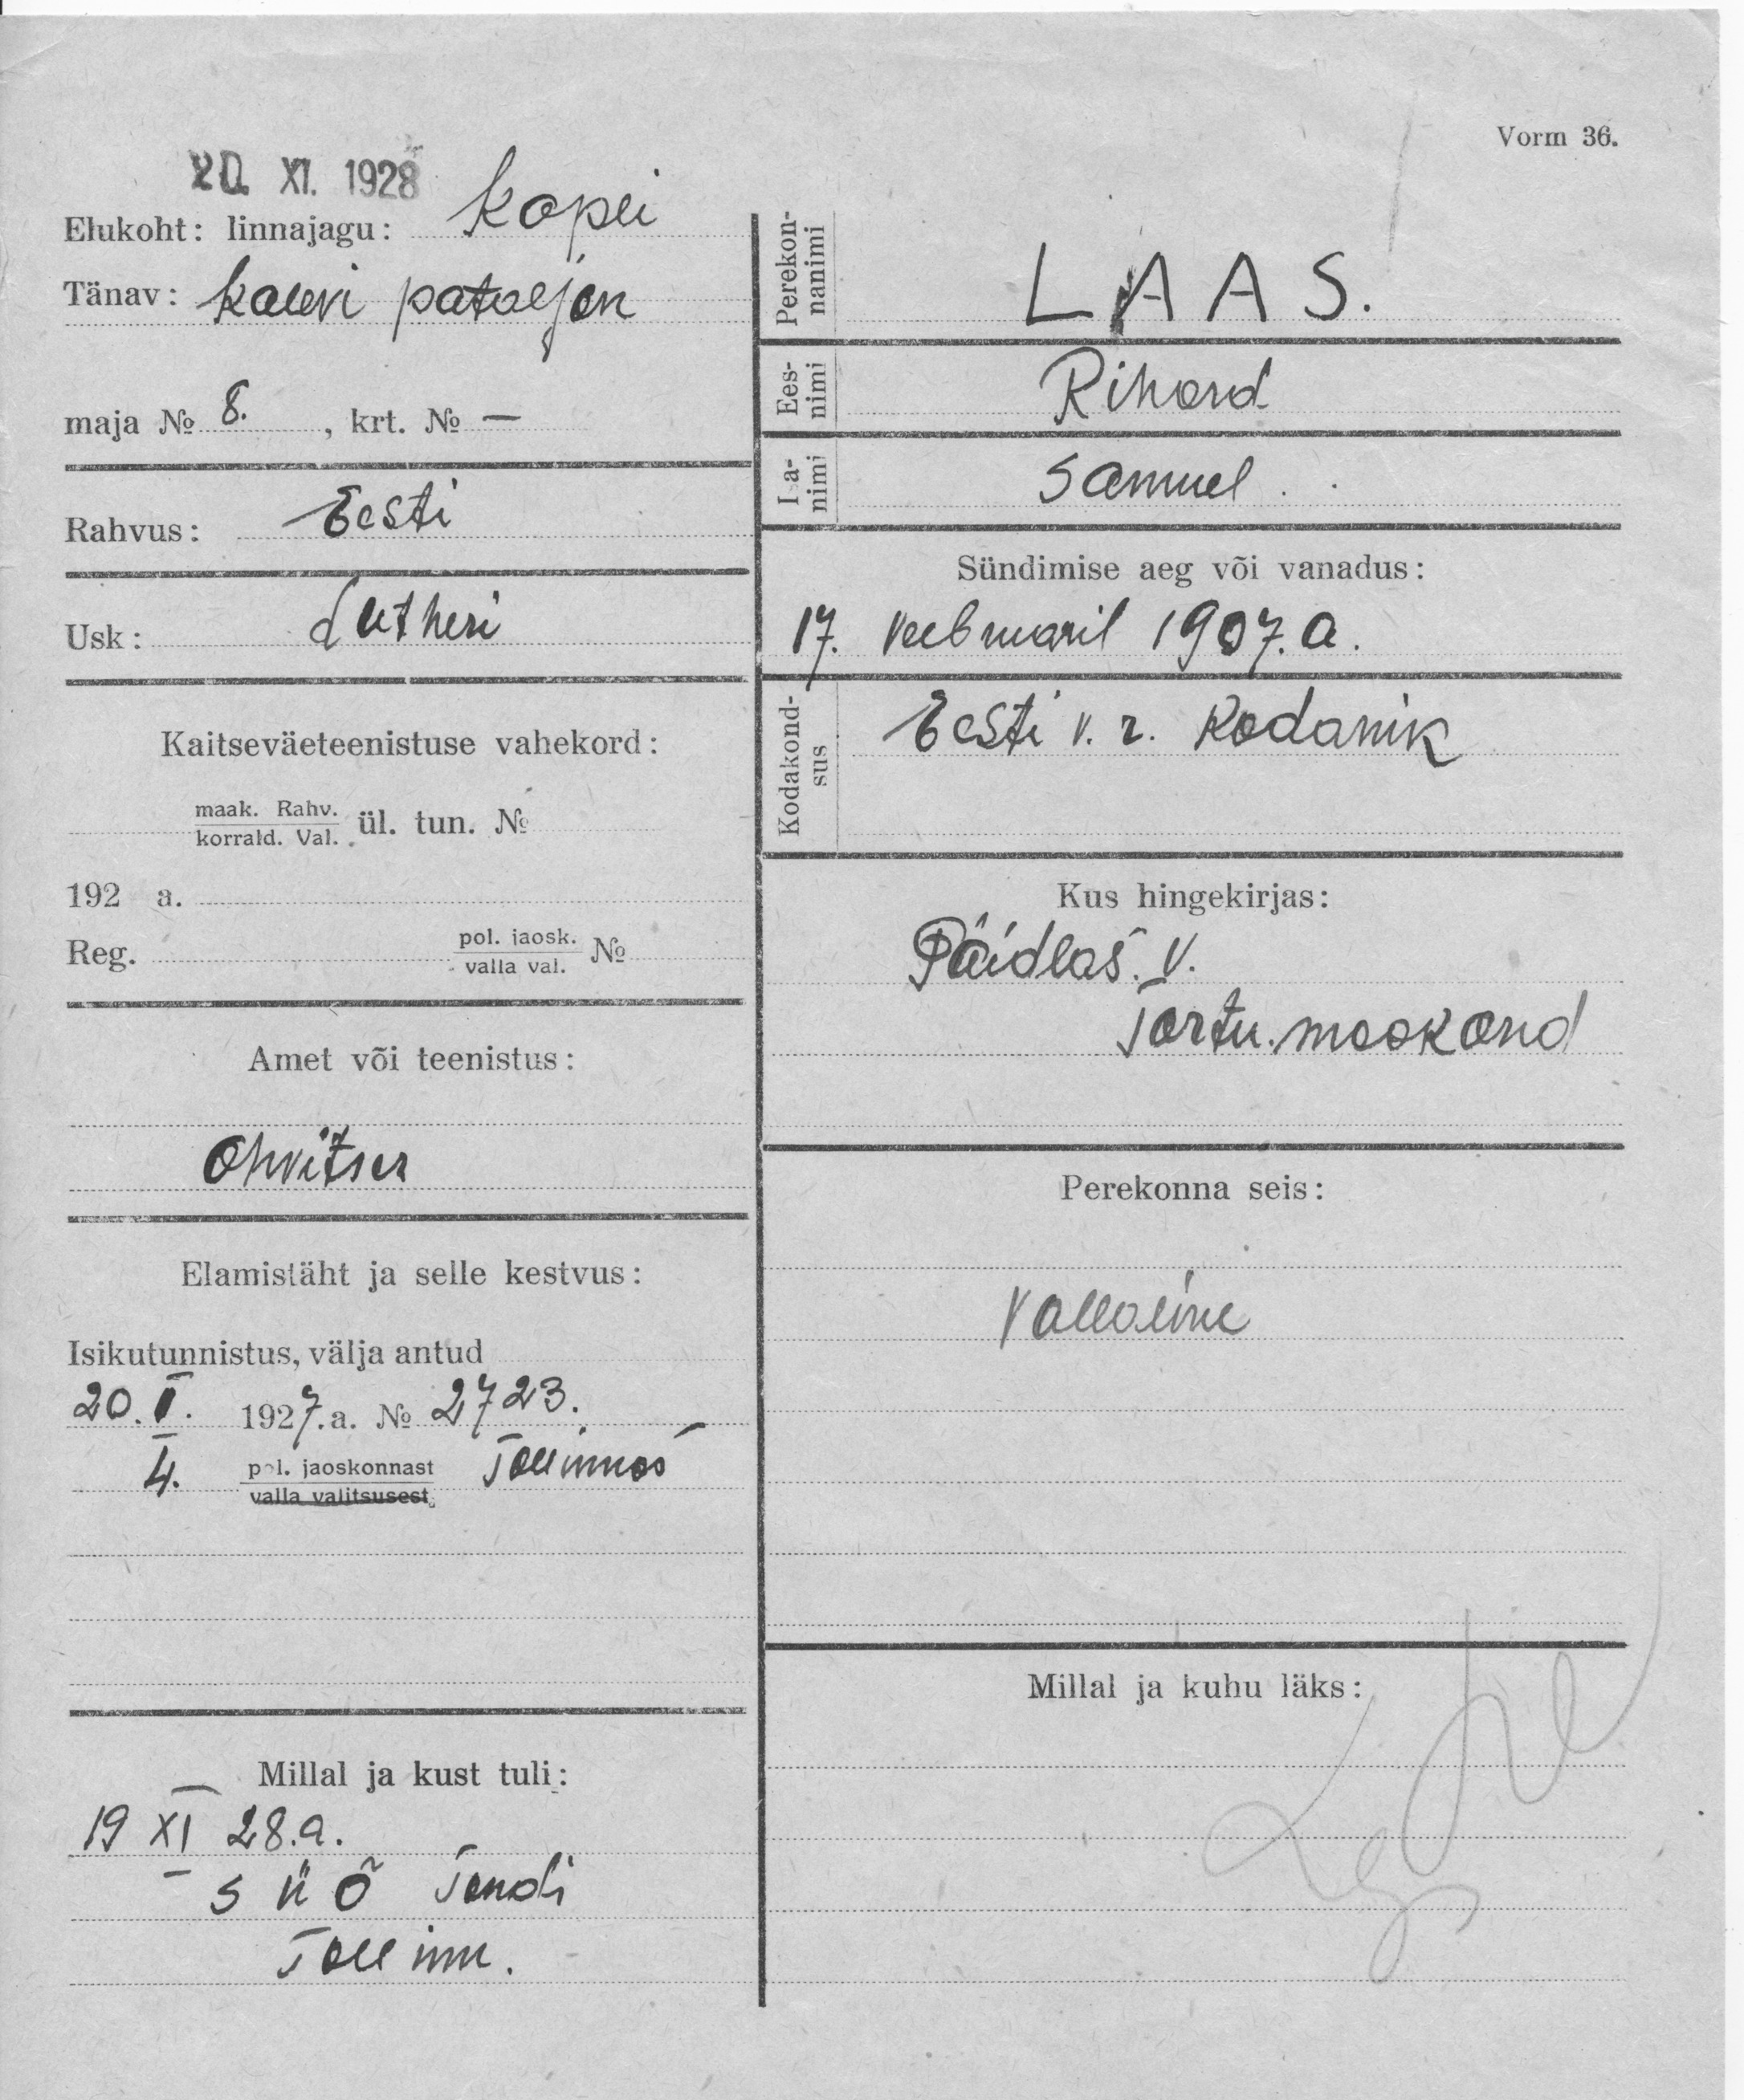 Vorm 36.
20. XI. 1928
Elukoht: linnajagu: Kopli
Tänav: Kalevi pataljon
maja № 8. , krt. № —
Rahvus: Eesti
Usk: Lutheri
Kaitseväeteenistuse vahekord:
maak. Rahv.
korrald. Val. ül. tun. №
192 a.
Reg. pol. jaosk.
valla val. №
Amet või teenistus:
Ohvitser
Elamistäht ja selle kestvus:
Isikutunnistus, välja antud
20. I. 1927. a. № 2723.
4. pol. jaoskonnast Tallinnas
valla valitsusest
Millal ja kust tuli:
19 XI 28.a.
S Ü Õ Tondi
Tallinn.
Perekon-
nanimi LAAS.
Ees-
nimi Rihard
Isa-
nimi Samuel
Sündimise aeg või vanadus:
17. veebruaril 1907. a.
Kodakond-
sus Eesti v. r. Kodanik
Kus hingekirjas:
Päidlas. v.
Tartu. maakond
Perekonna seis:
Vallaline
Millal ja kuhu läks: